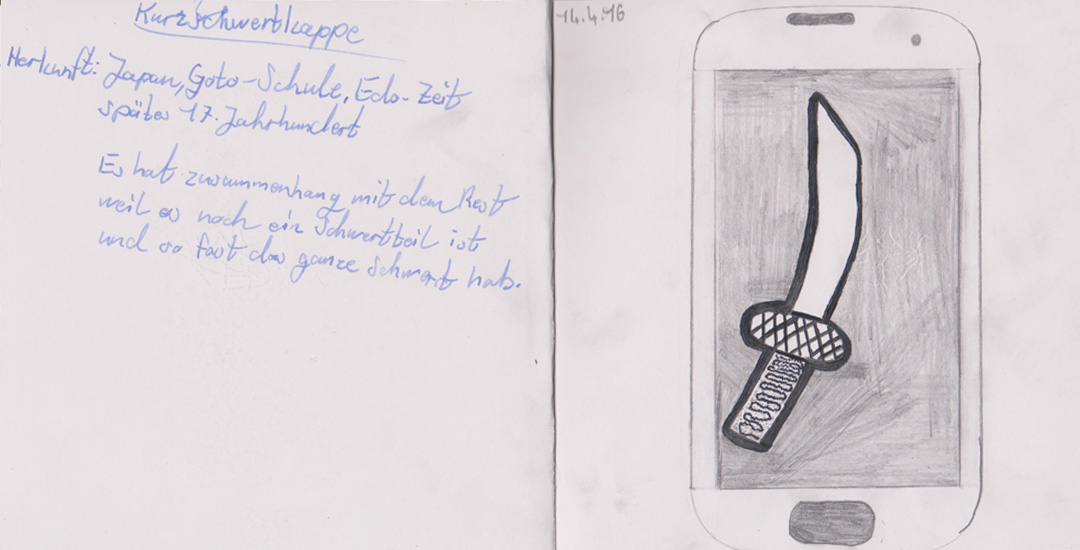 Kurzschwertkappe
Herkunft: Japan, Goto-Schule, Edo-Zeit
spätes 17. Jahrhundert
Es hat zusammenhang mit dem Rest
weil es noch ein Schwertteil ist
und so fast das ganze Schwert hab.
14.4.16